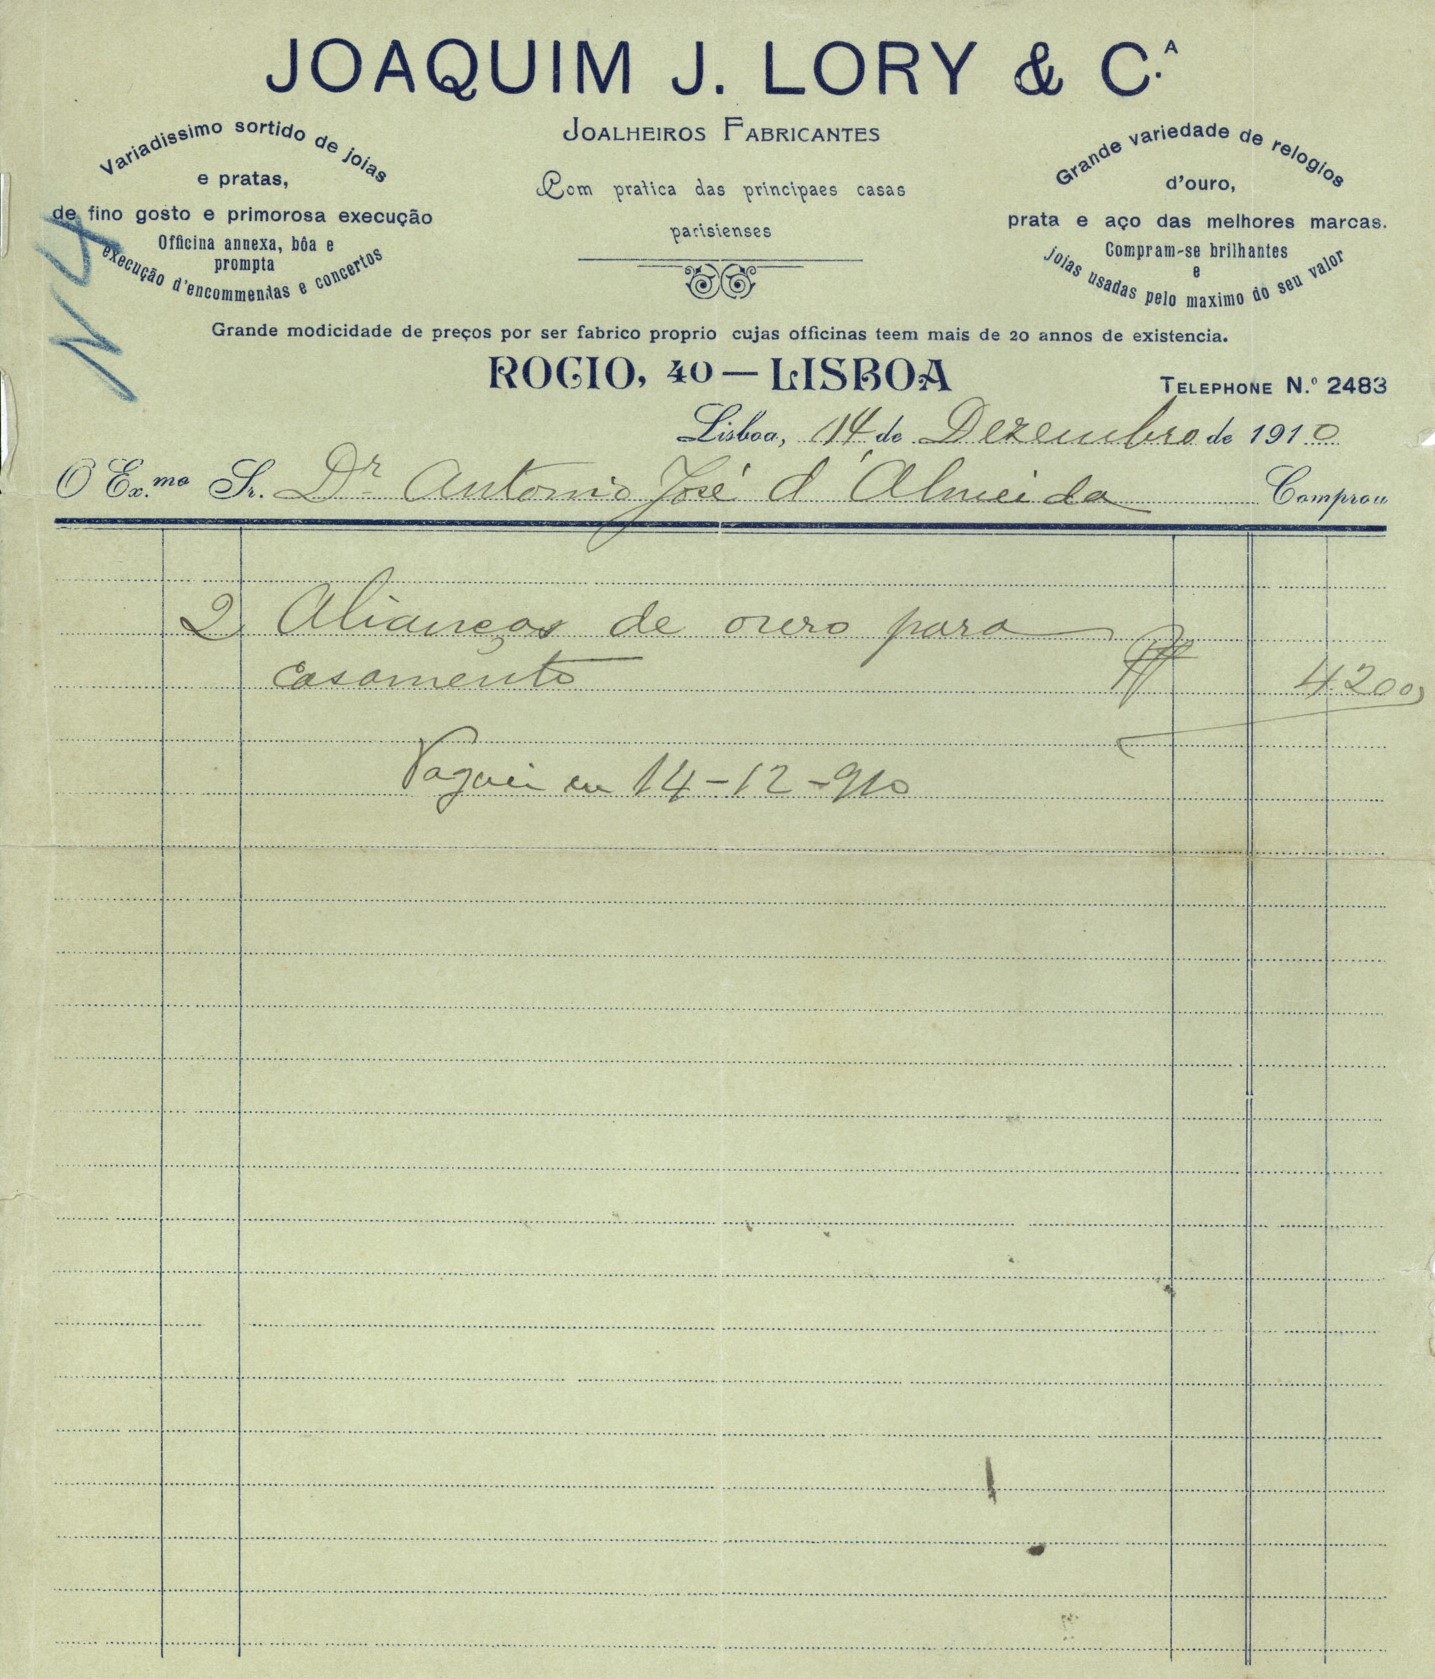 JOAQUIM J. LORY & C.A
JOALHEIROS FABRICANTES
Com pratica das principaes casas
parisienses
Variadissimo sortido de joias
e pratas,
de fino gosto e primorosa execução
Officina annexa, bôa e
prompta
execução d'encommendas e concertos
Grande variedade de relogios
d'ouro,
prata e aço das melhores marcas.
Compram-se brilhantes
e
joias usadas pelo maximo do seu valor
N 4
Grande modicidade de preços por ser fabrico proprio cujas officinas teem mais de 20 annos de existencia.
ROCIO, 40 — LISBOA
TELEPHONE N.º 2483
Lisboa, 14 de Dezembro de 1910
O Ex.mo Sr. Dr Antonio José d'Almeida Comprou
2 Alianças de ouro para
casamento 4.200
Paguei em 14-12-910